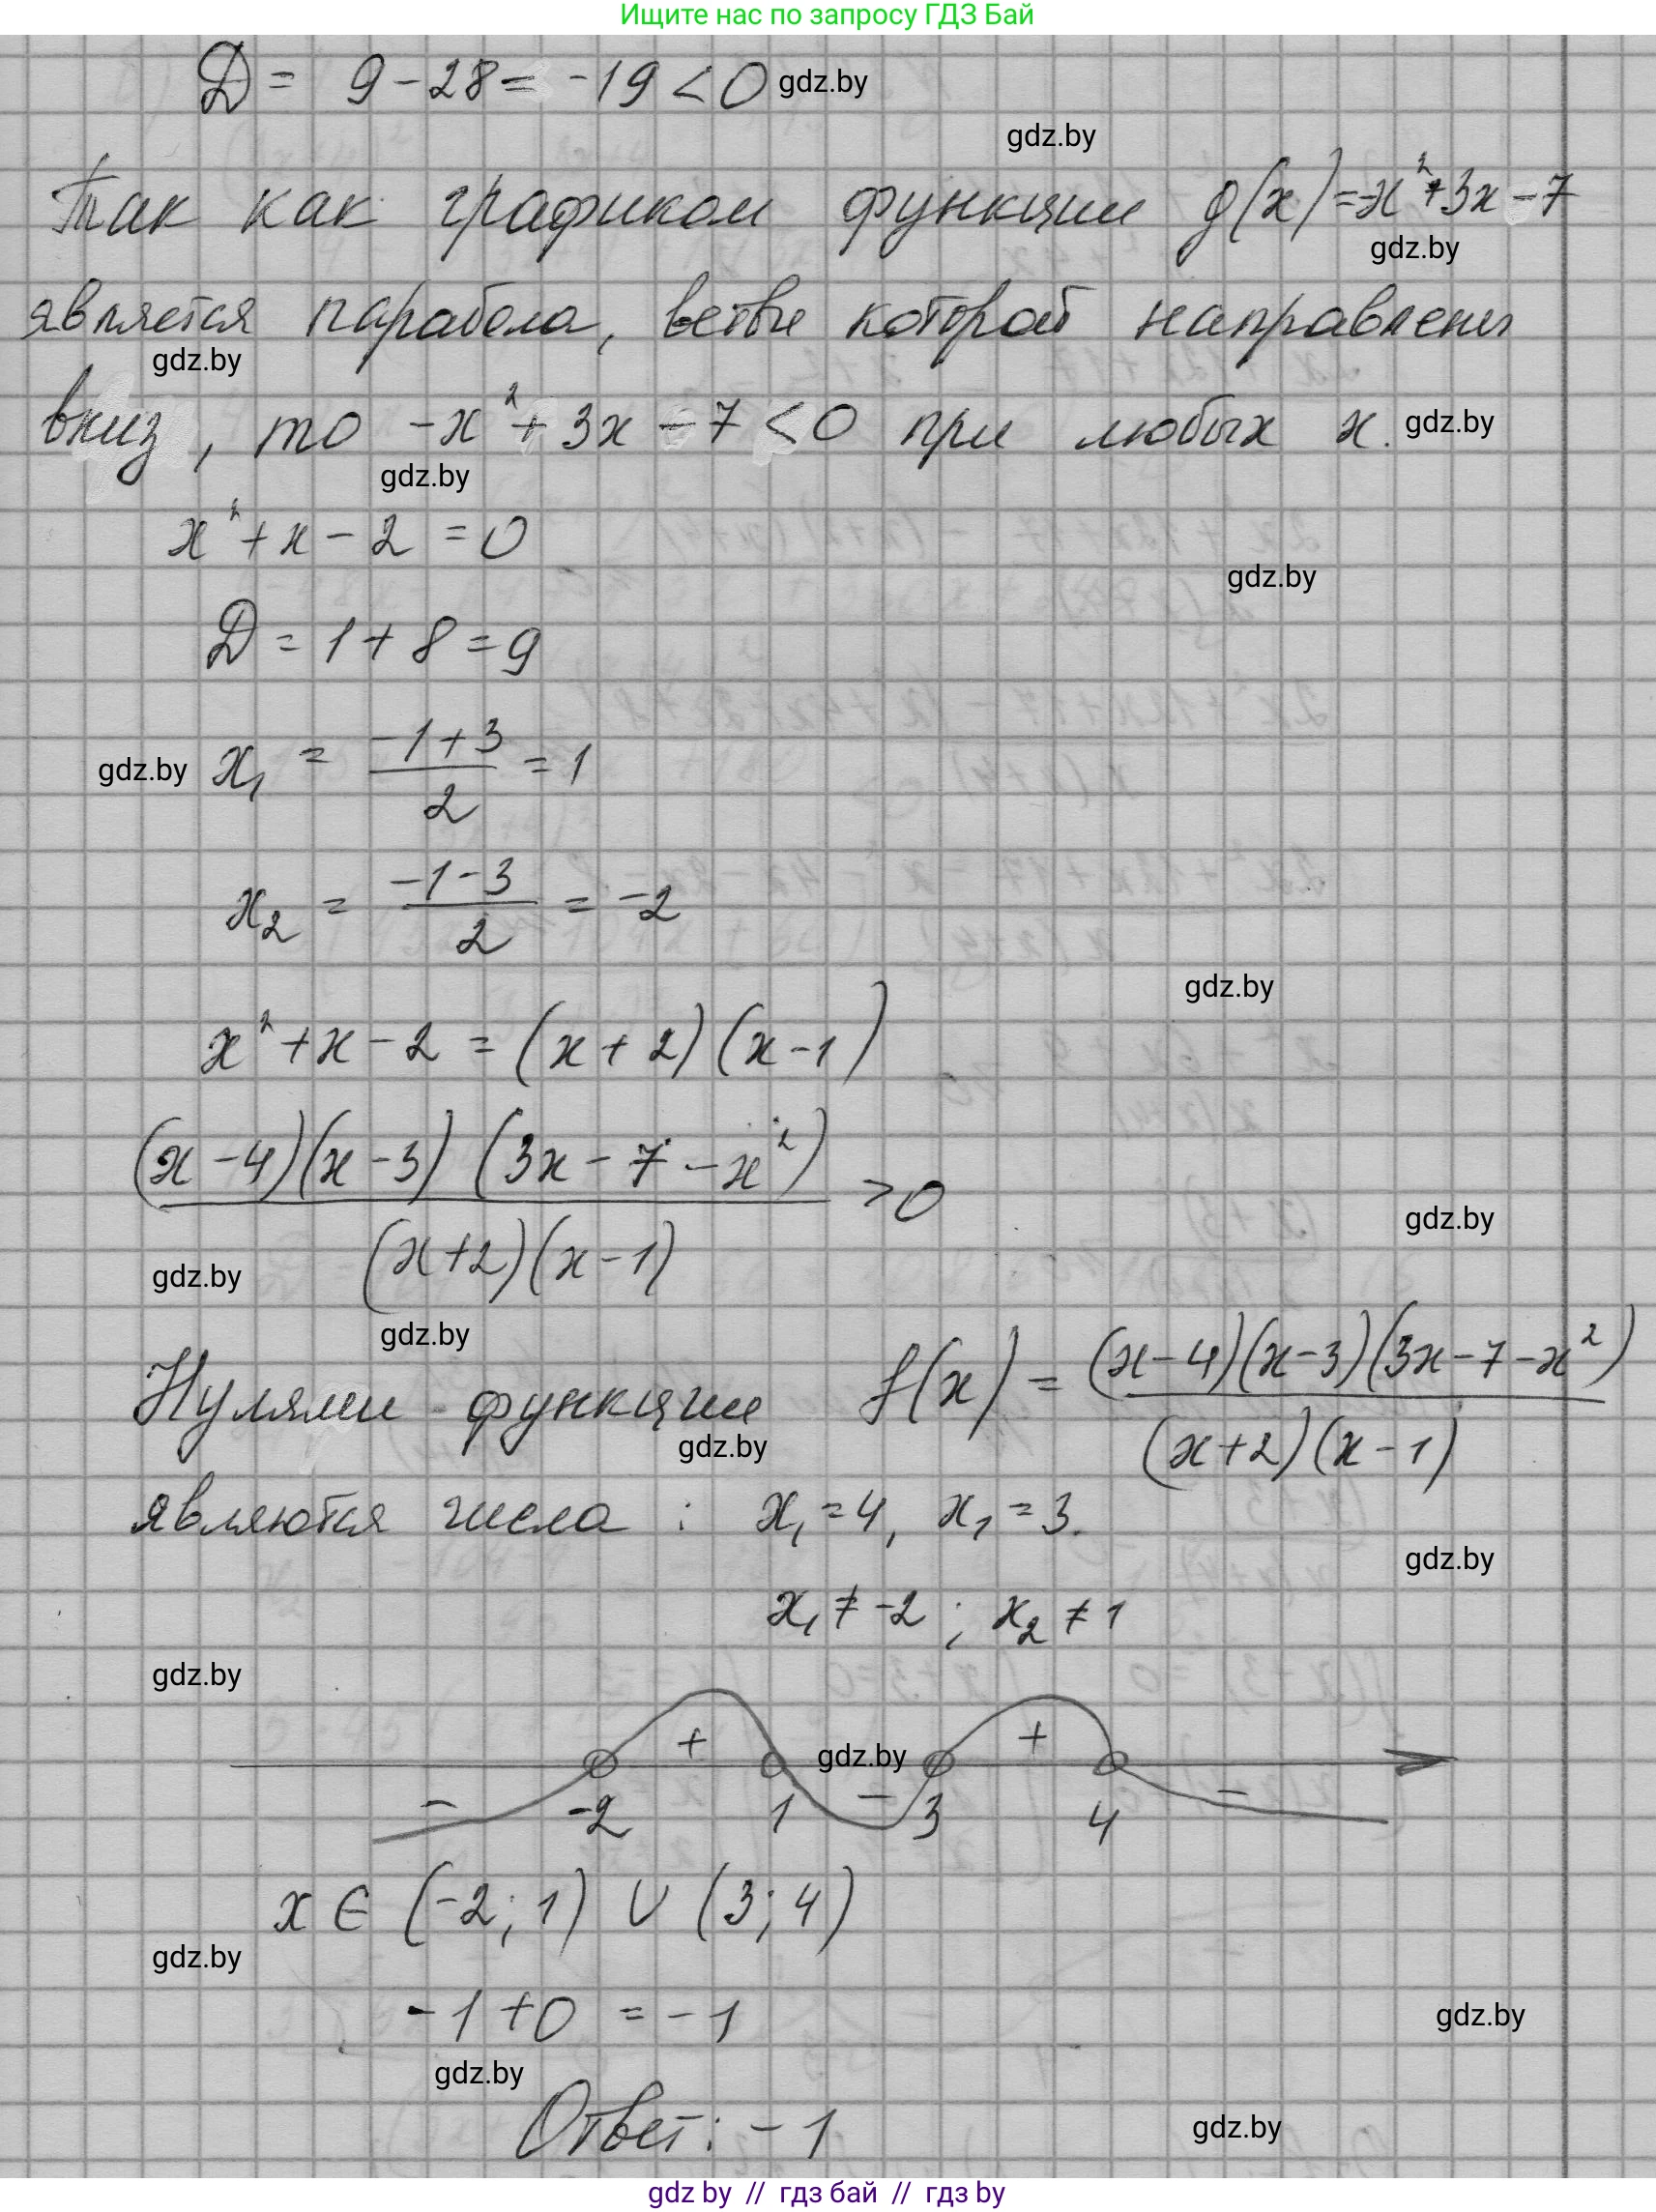 Ищите нас по запросу ГДЗ Бай
D = 9 - 28 = -19 < 0 gdz.by
gdz.by
Так как графиком функции g(x) = -x² + 3x - 7
gdz.by
является парабола, ветви которой направлены
gdz.by
вниз, то -x² + 3x - 7 < 0 при любых x. gdz.by
gdz.by
x² + x - 2 = 0
gdz.by
D = 1 + 8 = 9
gdz.by x₁ = (-1+3)/2 = 1
x₂ = (-1-3)/2 = -2
gdz.by
x² + x - 2 = (x+2)(x-1)
(x-4)(x-3)(3x-7-x²)/(x+2)(x-1) > 0
gdz.by
gdz.by
gdz.by
Нулями функции f(x) = (x-4)(x-3)(3x-7-x²)/(x+2)(x-1)
gdz.by
являются числа: x₁ = 4, x₁ = 3.
gdz.by
x₁ ≠ -2; x₂ ≠ 1
gdz.by
+ gdz.by +
- -2 1 - 3 4 -
x ∈ (-2; 1) ∪ (3; 4)
gdz.by
-1 + 0 = -1
gdz.by
gdz.by
Ответ: -1
gdz.by
gdz by // гдз бай // гдз by